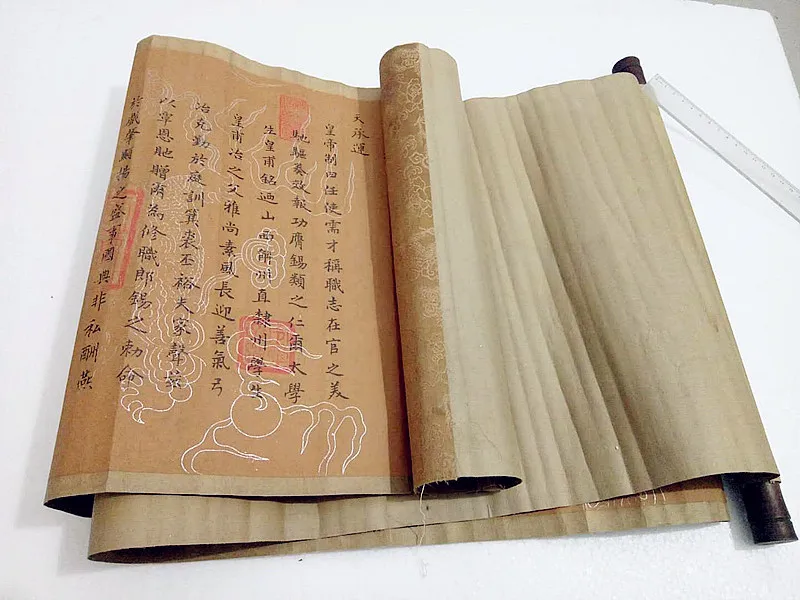 天承運
皇帝制曰任使需才稱職志在官之美
馳驅奏效報功膺錫類之仁爾太學
生皇甫銘迺山西解州直隸州學生
皇甫冶之父雅尚素風長迎善氣弓
冶克勤於庭訓箕裘丕裕夫家聲茲
以覃恩貤贈爾為修職郎錫之勅命
於戲肇顯揚之盛事國典非私酬燕